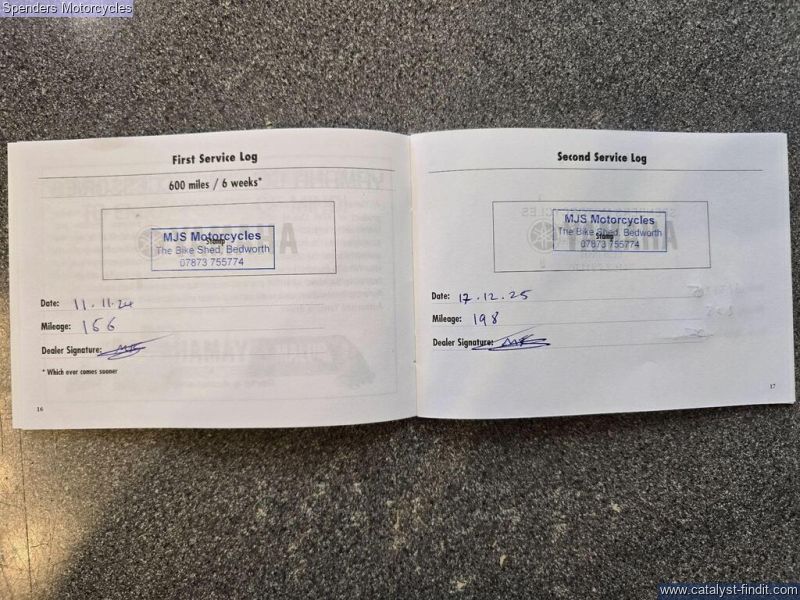 Spenders Motorcycles
First Service Log
600 miles / 6 weeks*
Stamp
MJS Motorcycles
The Bike Shed, Bedworth
07873 755774
Date: 11.11.24
Mileage: 166
Dealer Signature:
* Which ever comes sooner
16
Second Service Log
Stamp
MJS Motorcycles
The Bike Shed, Bedworth
07873 755774
Date: 17.12.25
Mileage: 198
Dealer Signature:
17
www.catalyst-findit.com